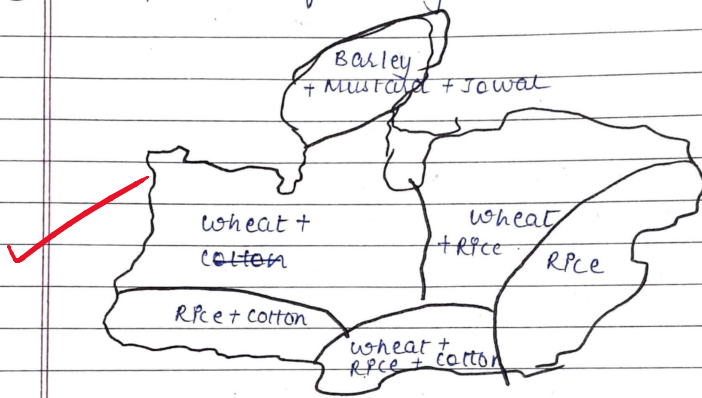 Barley
+ Mustard + Jowar
Wheat +
Cotton
Wheat
+ Rice
Rice
Rice + Cotton
Wheat +
Rice + Cotton